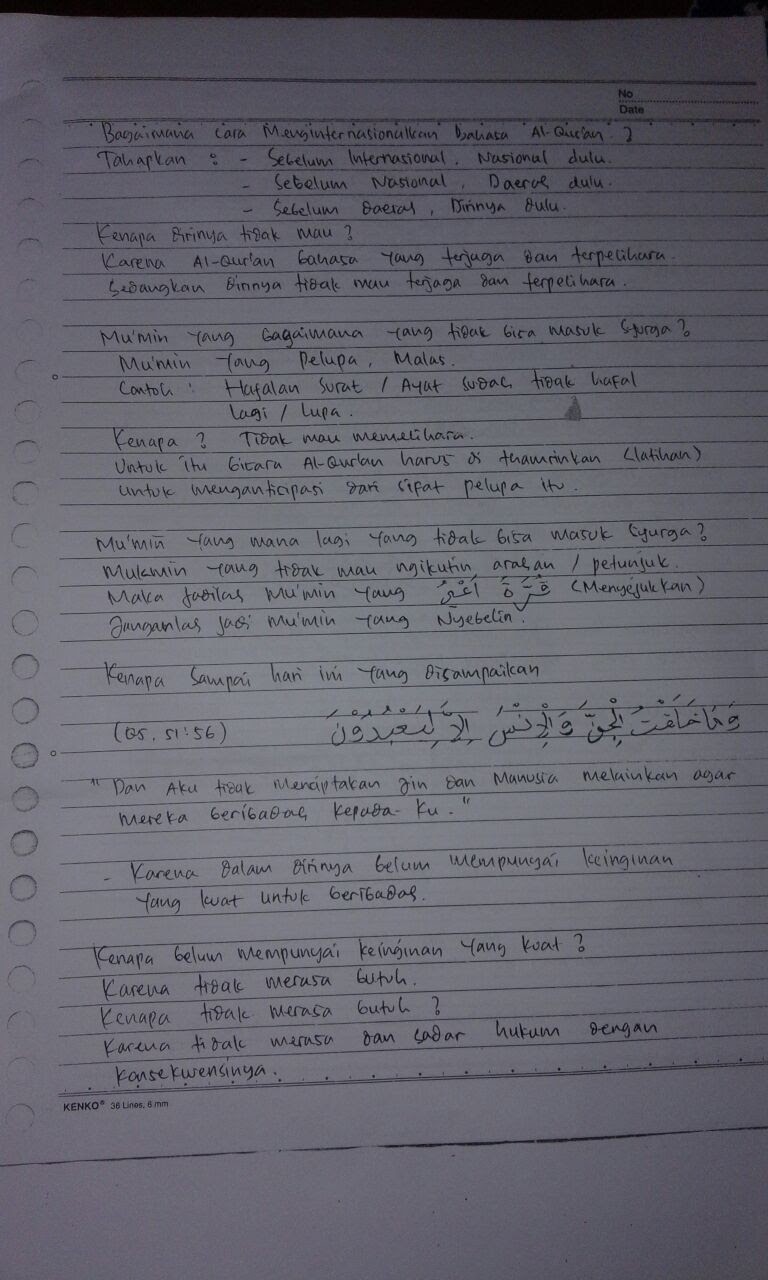 No
Date
Bagaimana cara Menginternasionalkan bahasa Al-Qur'an ?
Tahapkan : - Sebelum Internasional, Nasional dulu.
- Sebelum Nasional, Daerah dulu.
- Sebelum daerah, Dirinya dulu.
Kenapa dirinya tidak mau ?
Karena Al-Qur'an bahasa yang terjaga dan terpelihara.
Sedangkan dirinya tidak mau terjaga dan terpelihara.
Mu'min yang bagaimana yang tidak bisa masuk syurga ?
Mu'min yang pelupa, Malas.
Contoh : Hafalan surat / Ayat sudah tidak hafal
lagi / lupa.
Kenapa ? Tidak mau memelihara.
Untuk itu bicara Al-Qur'an harus di thamrinkan (latihan)
untuk menganticipasi dari sifat pelupa itu.
Mu'min yang mana lagi yang tidak bisa masuk syurga ?
Mukmin yang tidak mau ngikutin arahan / petunjuk.
Maka jadilah Mu'min yang قُرَّةَ أَعْيُنٍ (Menyejukkan)
Janganlah jadi mu'min yang Nyebelin.
Kenapa sampai hari ini yang disampaikan
(QS. 51:56) وَمَا خَلَقْتُ الْجِنَّ وَالْإِنْسَ إِلَّا لِيَعْبُدُوْنَ
" Dan Aku tidak menciptakan jin dan Manusia melainkan agar
mereka beribadah kepada-Ku."
- Karena dalam dirinya belum mempunyai keinginan
yang kuat untuk beribadah.
Kenapa belum mempunyai keinginan yang kuat ?
Karena tidak merasa butuh.
Kenapa tidak merasa butuh ?
Karena tidak merasa dan sadar hukum dengan
konsekwensinya.
KENKO® 36 Lines, 6 mm